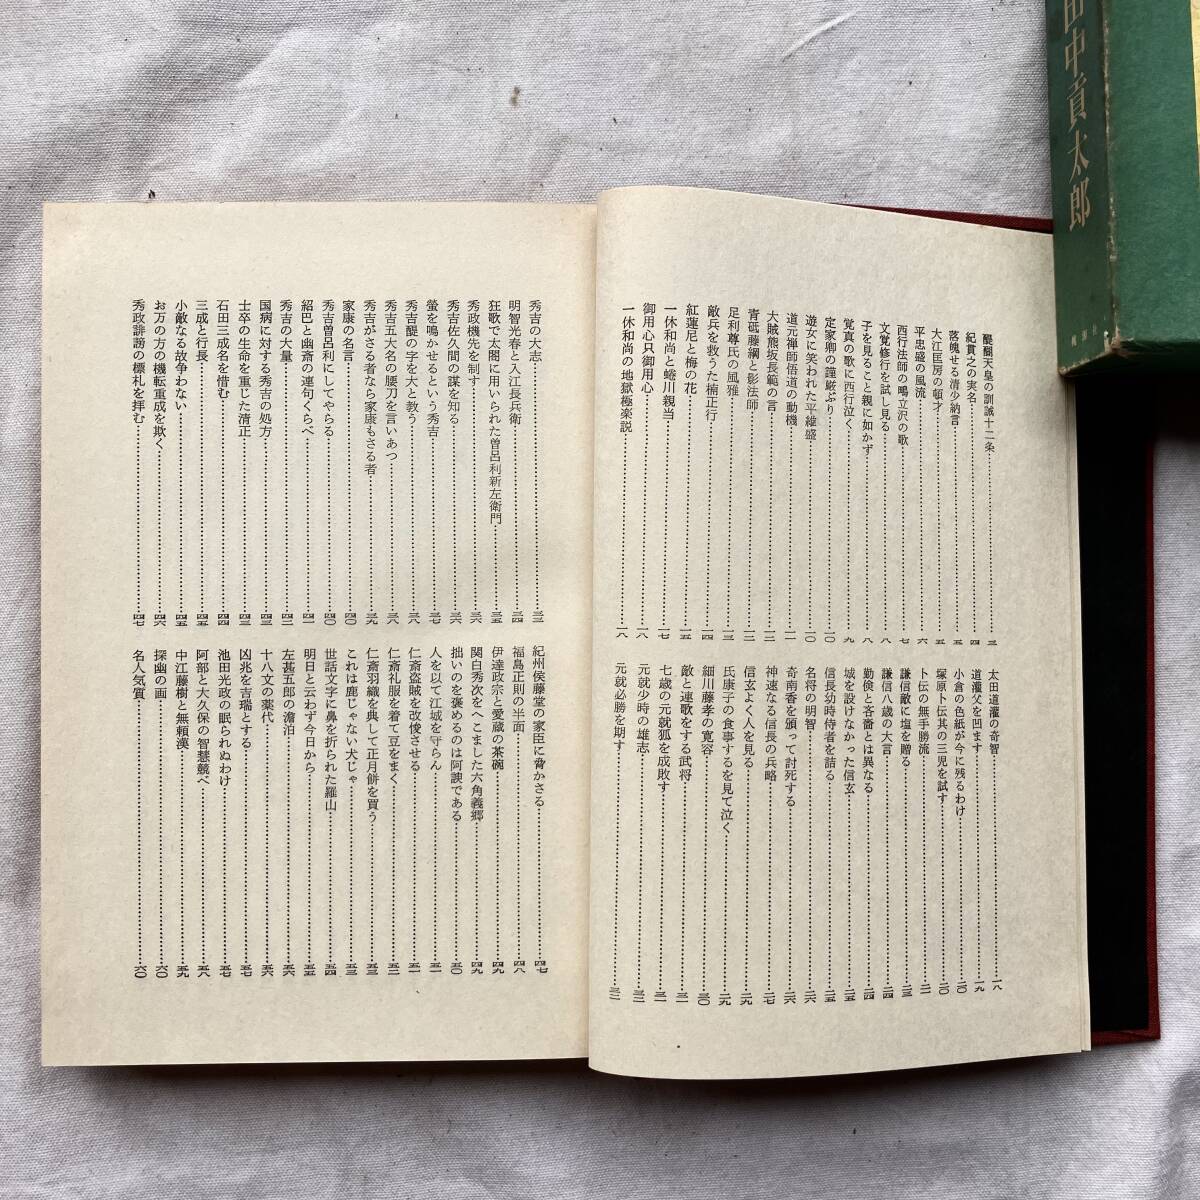 田中貢太郎
醍醐天皇の訓誡十二条……三
紀貫之の実名……四
落魄せる清少納言……五
大江匡房の頓才……五
平忠盛の風流……六
西行法師の鴫立沢の歌……七
文覚修行を試し見る……八
子を見ること親に如かず……八
覚真の歌に西行泣く……九
定家卿の謹厳ぶり……一〇
遊女に笑われた平維盛……一〇
道元禅師悟道の動機……一一
大賊熊坂長範の言……一二
青砥藤綱と影法師……一三
足利尊氏の風雅……一三
敵兵を救うた楠正行……一四
紅蓮尼と梅の花……一五
一休和尚と蜷川親当……一七
御用心只御用心……一八
一休和尚の地獄極楽説……一八
太田道灌の奇智……一八
道灌父を凹ます……一九
小倉の色紙が今に残るわけ……二〇
塚原卜伝其の三児を試す……二〇
卜伝の無手勝流……二一
謙信敵に塩を贈る……二三
謙信八歳の大言……二四
勤倹と吝嗇とは異なる……二四
城を設けなかった信玄……二五
信長幼時侍者を詰る……二五
名将の明智……二六
奇南香を頒って討死する……二六
神速なる信長の兵略……二七
信玄よく人を用る……二九
氏康子の食事するを見て泣く……二九
細川藤孝の寛容……三〇
敵と連歌をする武将……三一
七歳の元就狐を成敗す……三一
元就少時の雄志……三二
元就必勝を期す……三二
秀吉の大志……三三
明智光春と入江長兵衛……三四
狂歌で太閤に用いられた曽呂利新左衛門……三五
秀政機先を制す……三六
秀吉佐久間の謀を知る……三六
螢を鳴かせるという秀吉……三七
秀吉醍の字を大と教う……三八
秀吉五大名の腰刀を言いあつ……三八
秀吉がさる者なら家康もさる者……三九
家康の名言……四〇
秀吉曽呂利にしてやらる……四〇
紹巴と幽斎の連句くらべ……四一
秀吉の大量……四二
国病に対する秀吉の処方……四三
士卒の生命を重じた清正……四三
石田三成名を惜む……四四
三成と行長……四五
小敵なる故争わない……四五
お万の方の機転重成を欺く……四六
秀政誹謗の標札を拝む……四七
紀州侯藤堂の家臣に脅かさる……四七
福島正則の半面……四八
伊達政宗と愛蔵の茶碗……四九
関白秀次をへこました六角義郷……四九
拙いのを褒めるのは阿諛である……五〇
人を以て江城を守らん……五一
仁斎盗賊を改悛させる……五二
仁斎礼服を着て豆をまく……五二
仁斎羽織を典して正月餅を買う……五三
これは鹿じゃない犬じゃ……五三
世話文字に鼻を折られた羅山……五四
明日と云わず今日から……五五
左甚五郎の澹泊……五六
十八文の薬代……五六
凶兆を吉瑞とする……五七
池田光政の眠られぬわけ……五七
阿部と大久保の智慧競べ……五八
中江藤樹と無頼漢……五九
探幽の画……六〇
名人気質……六〇